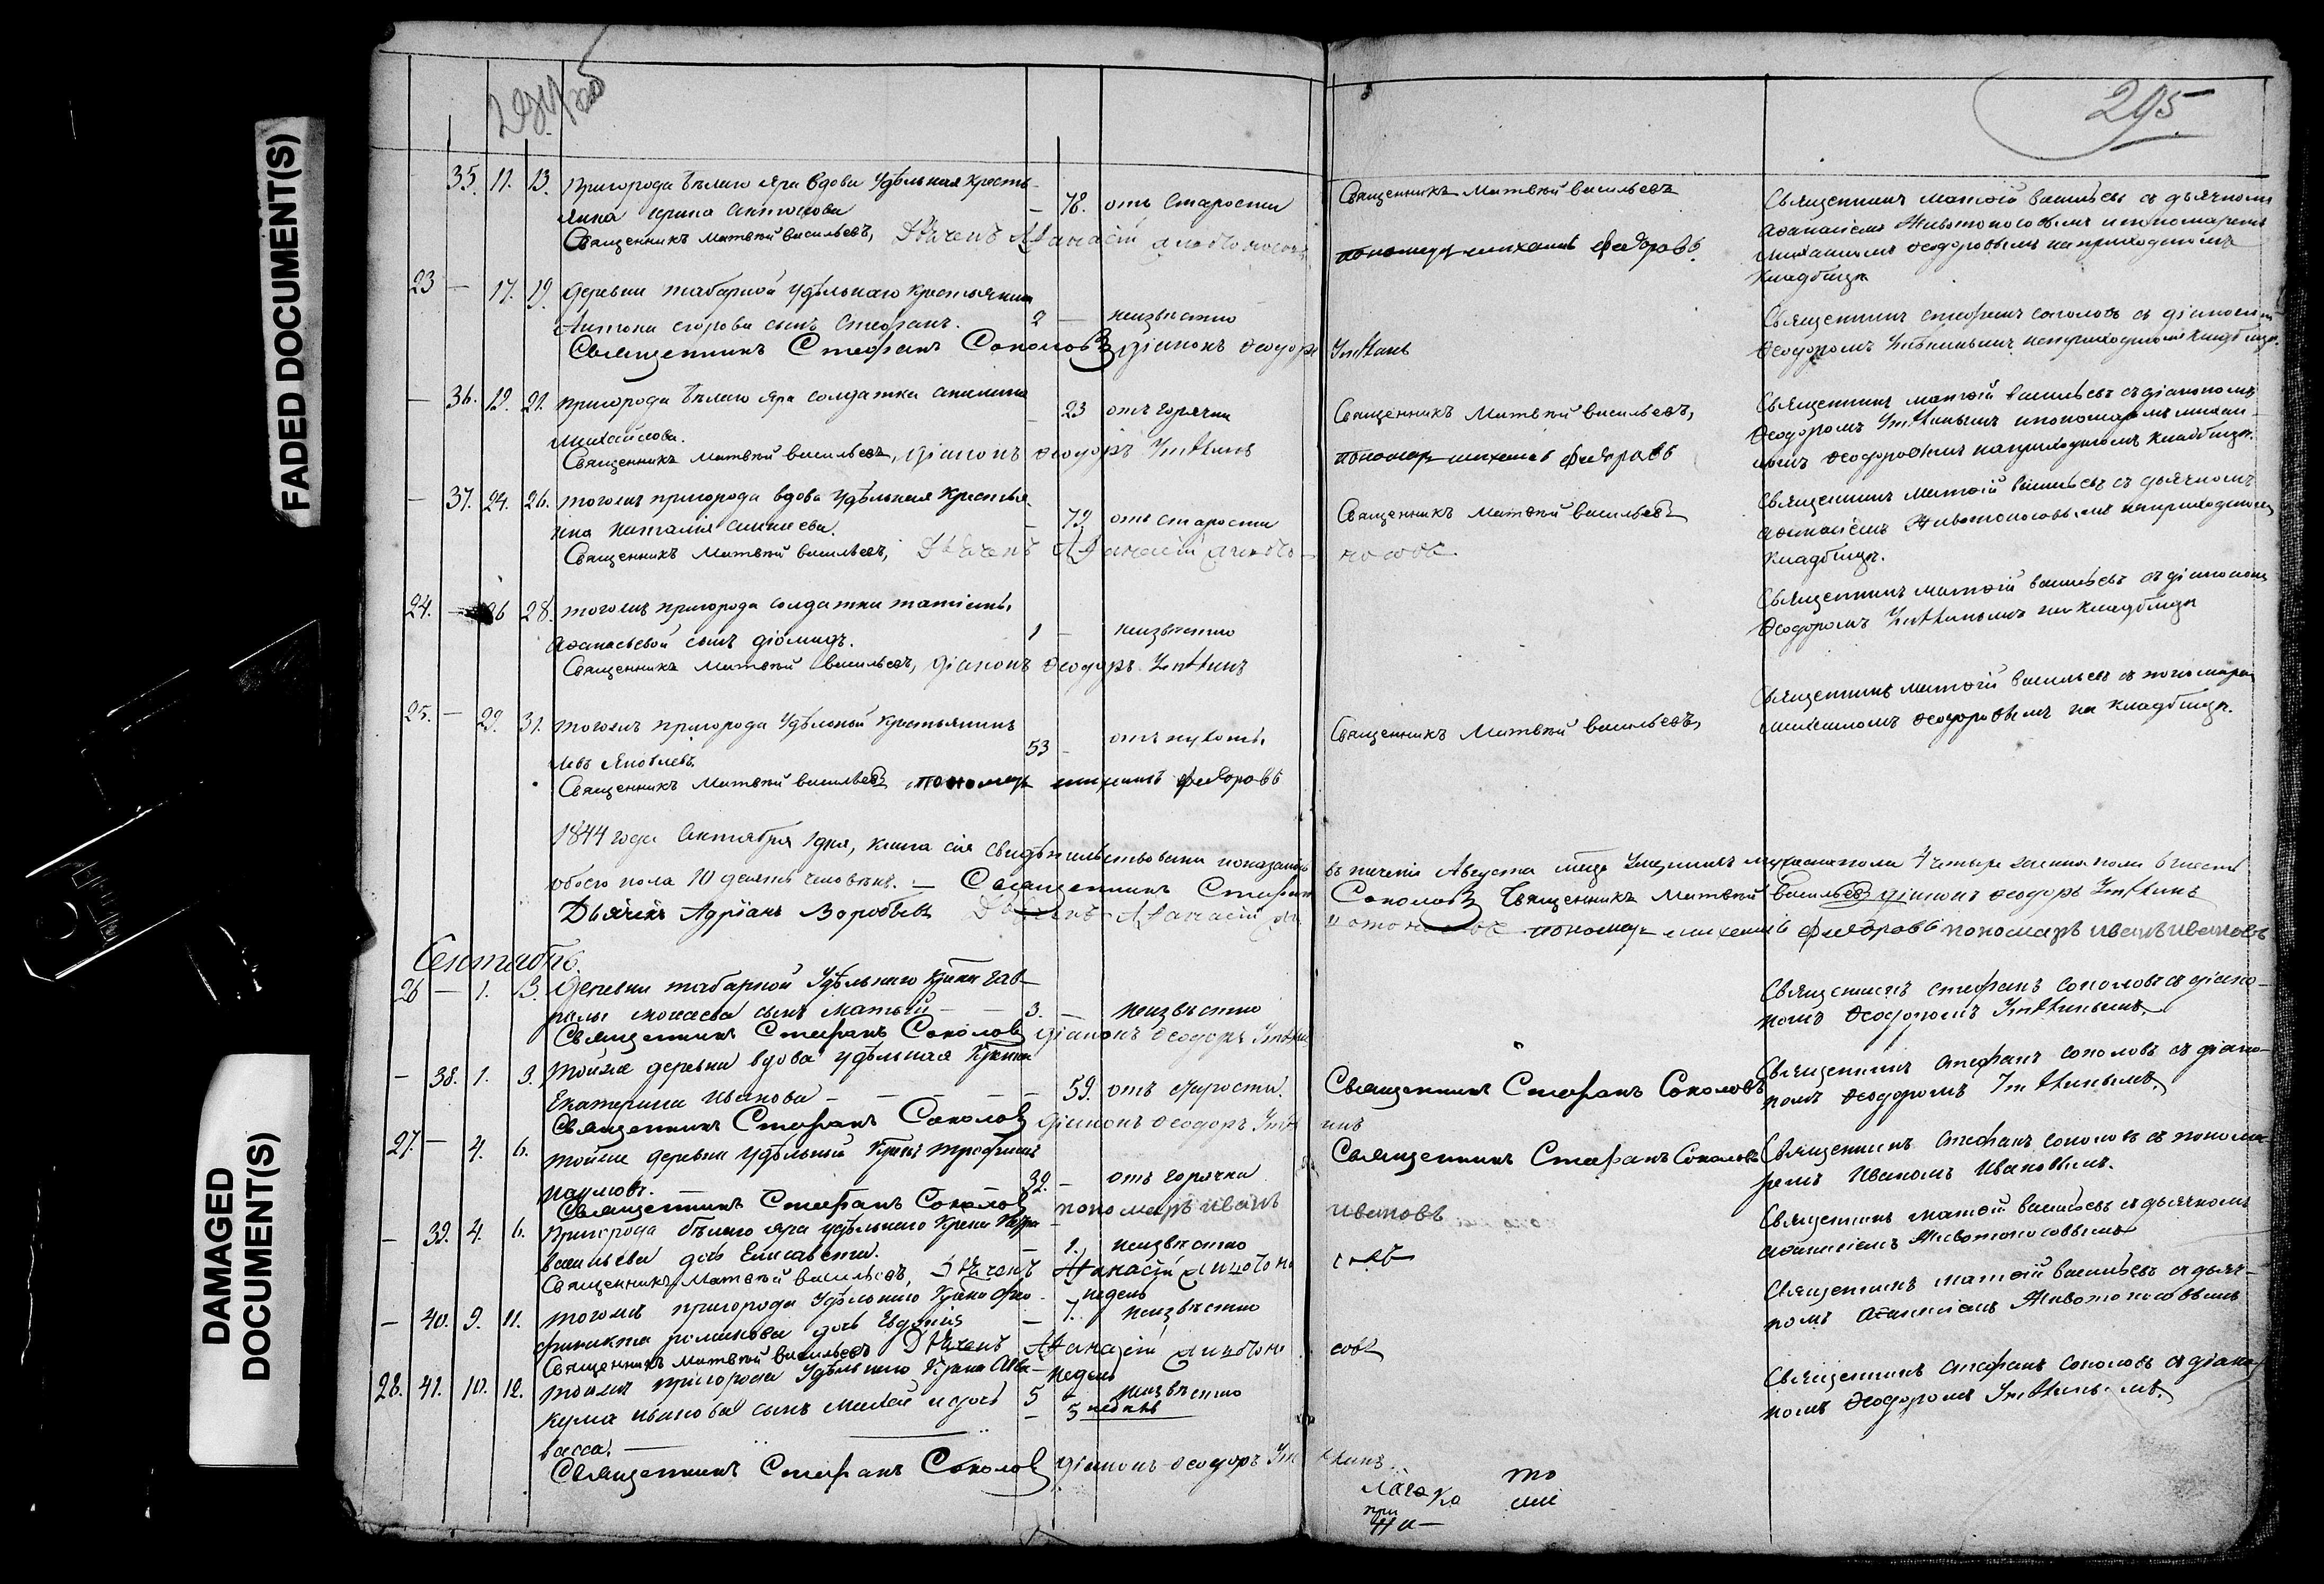 FADED DOCUMENT(S)
DAMAGED
DOCUMENT(S)
295
35. 11. 13. Пригорода Бѣлаго Яра вдова Удѣльная Кресть-
янка Ирина Антонова — 78. отъ старости
Священникъ Матвѣй Васильевъ, Дьячекъ Афанасій Животоносовъ
Священникъ Матвѣй Васильевъ
пономарь михаилъ федоровъ
Священникъ Матѳій Васильевъ съ дьячкомъ
Аѳанасіемъ Животоносовымъ и пономаремъ
Михаиломъ Ѳеодоровымъ на приходскомъ
кладбищѣ
23 — 17. 19. Деревни табарной удѣльнаго крестьянина
Антона егорова сынъ Стефанъ. 2 — неизвѣстно
Священникъ Стефанъ Соколовъ діаконъ Ѳеодоръ
Священникъ стефанъ соколовъ съ діакономъ
Ѳеодоромъ на приходскомъ кладбищѣ.
— 36. 19. 21. Пригорода Бѣлаго Яра солдатка
Михайлова. — 23 отъ горячки
Священникъ Матвѣй Васильевъ, діаконъ Ѳеодоръ
Священникъ Матвѣй Васильевъ,
пономарь михаилъ федоровъ
Священникъ матѳій васильевъ съ діакономъ
Ѳеодоромъ и пономаремъ михаи-
ломъ Ѳеодоровымъ на приходскомъ кладбищѣ.
— 37. 24. 26. тогожъ пригорода вдова Удѣльная Крестья-
нка Наталія Алексѣева. — 79 отъ старости
Священникъ Матвѣй Васильевъ, Дьячекъ Афанасій Живото-
носовъ
Священникъ Матвѣй Васильевъ
Священникъ Матѳій Васильевъ съ дьячкомъ
Аѳанасіемъ Животоносовымъ на приходскомъ
кладбищѣ.
24. — 26 28. тогожъ пригорода солдатки татіаны
Аѳанасьевой сынъ діомидъ. 1 — неизвѣстно
Священникъ Матвѣй Васильевъ, діаконъ Ѳеодоръ
Священникъ матѳій васильевъ съ діакономъ
Ѳеодоромъ на кладбищѣ
25. — 29. 31. тогожъ пригорода Удѣльный Крестьянинъ
Левъ Яковлевъ. 53 —
Священникъ Матвѣй Васильевъ пономарь михаилъ федоровъ
Священникъ Матвѣй Васильевъ,
Священникъ матѳій васильевъ съ пономаремъ
михаиломъ Ѳеодоровымъ на кладбищѣ.
1844 года Октября 1 дня, книга сія свидѣтельствована показано въ теченіи Августа мѣсяца умершихъ мужеска пола 4 четыре женска пола 6 шесть
обоего пола 10 десять человѣкъ. — Священникъ Стефанъ Соколовъ Священникъ Матвѣй Васильевъ діаконъ Ѳеодоръ
Дьячекъ Адріанъ Воробьевъ Дьячекъ Афанасій Животоносовъ пономарь михаилъ федоровъ пономарь иванъ ивановъ
Сентябрь.
26 — 1. 3. Деревни табарной Удѣльнаго Кр-на гав-
рилы моисеева сынъ Матвѣй — 3. — неизвѣстно
Священникъ Стефанъ Соколовъ діаконъ Ѳеодоръ
Священникъ стефанъ соколовъ съ діако-
номъ Ѳеодоромъ
— 38. 1. 3. Тойже деревни вдова удѣльная Кр-нка
Екатерина Иванова — 59. отъ старости.
Священникъ Стефанъ Соколовъ діаконъ Ѳеодоръ
Священникъ Стефанъ Соколовъ
Священникъ стефанъ соколовъ съ діако-
номъ Ѳеодоромъ
27. — 4. 6. Тойже деревни удѣльный Кр-нъ трофимъ
павловъ. 32. — отъ горячки
Священникъ Стефанъ Соколовъ пономарь иванъ ивановъ
Священникъ Стефанъ Соколовъ
Священникъ стефанъ соколовъ съ понома-
ремъ Иваномъ Ивановымъ.
— 39. 4. 6. Пригорода бѣлаго яра удѣльнаго Кр-на
васильева дочь Елисавета. — 1. неизвѣстно
Священникъ Матвѣй Васильевъ, Дьячекъ Афанасій Животоносовъ
Священникъ матѳій васильевъ съ дьячкомъ
аѳанасіемъ Животоносовымъ
— 40. 9. 11. тогожъ пригорода Удѣльнаго Кр-на
романова дочь Евдокія — 7. недель неизвѣстно
Священникъ Матвѣй Васильевъ Дьячекъ Афанасій Животоносовъ
Священникъ матѳій васильевъ съ дьяч-
комъ аѳанасіемъ Животоносовымъ
28. 41. 10. 12. тогожъ пригорода Удѣльнаго Кр-на Ава-
кума иванова сынъ Михаилъ и дочь 5 недель неизвѣстно
васса. — 5 недель
Священникъ Стефанъ Соколовъ діаконъ Ѳеодоръ
Священникъ стефанъ соколовъ съ діако-
номъ Ѳеодоромъ